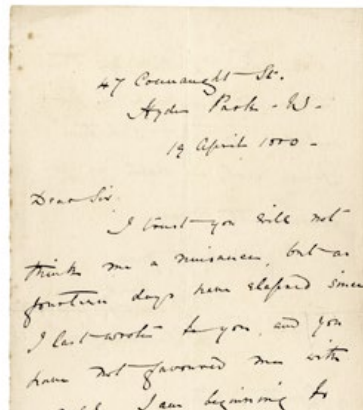 47 Connaught St.
Hyde Park - W -
19 April 1880 -
Dear Sir
I trust you will not
think me a nuisance, but as
fourteen days have elapsed since
I last wrote to you, and you
have not favoured me with
I am beginning to